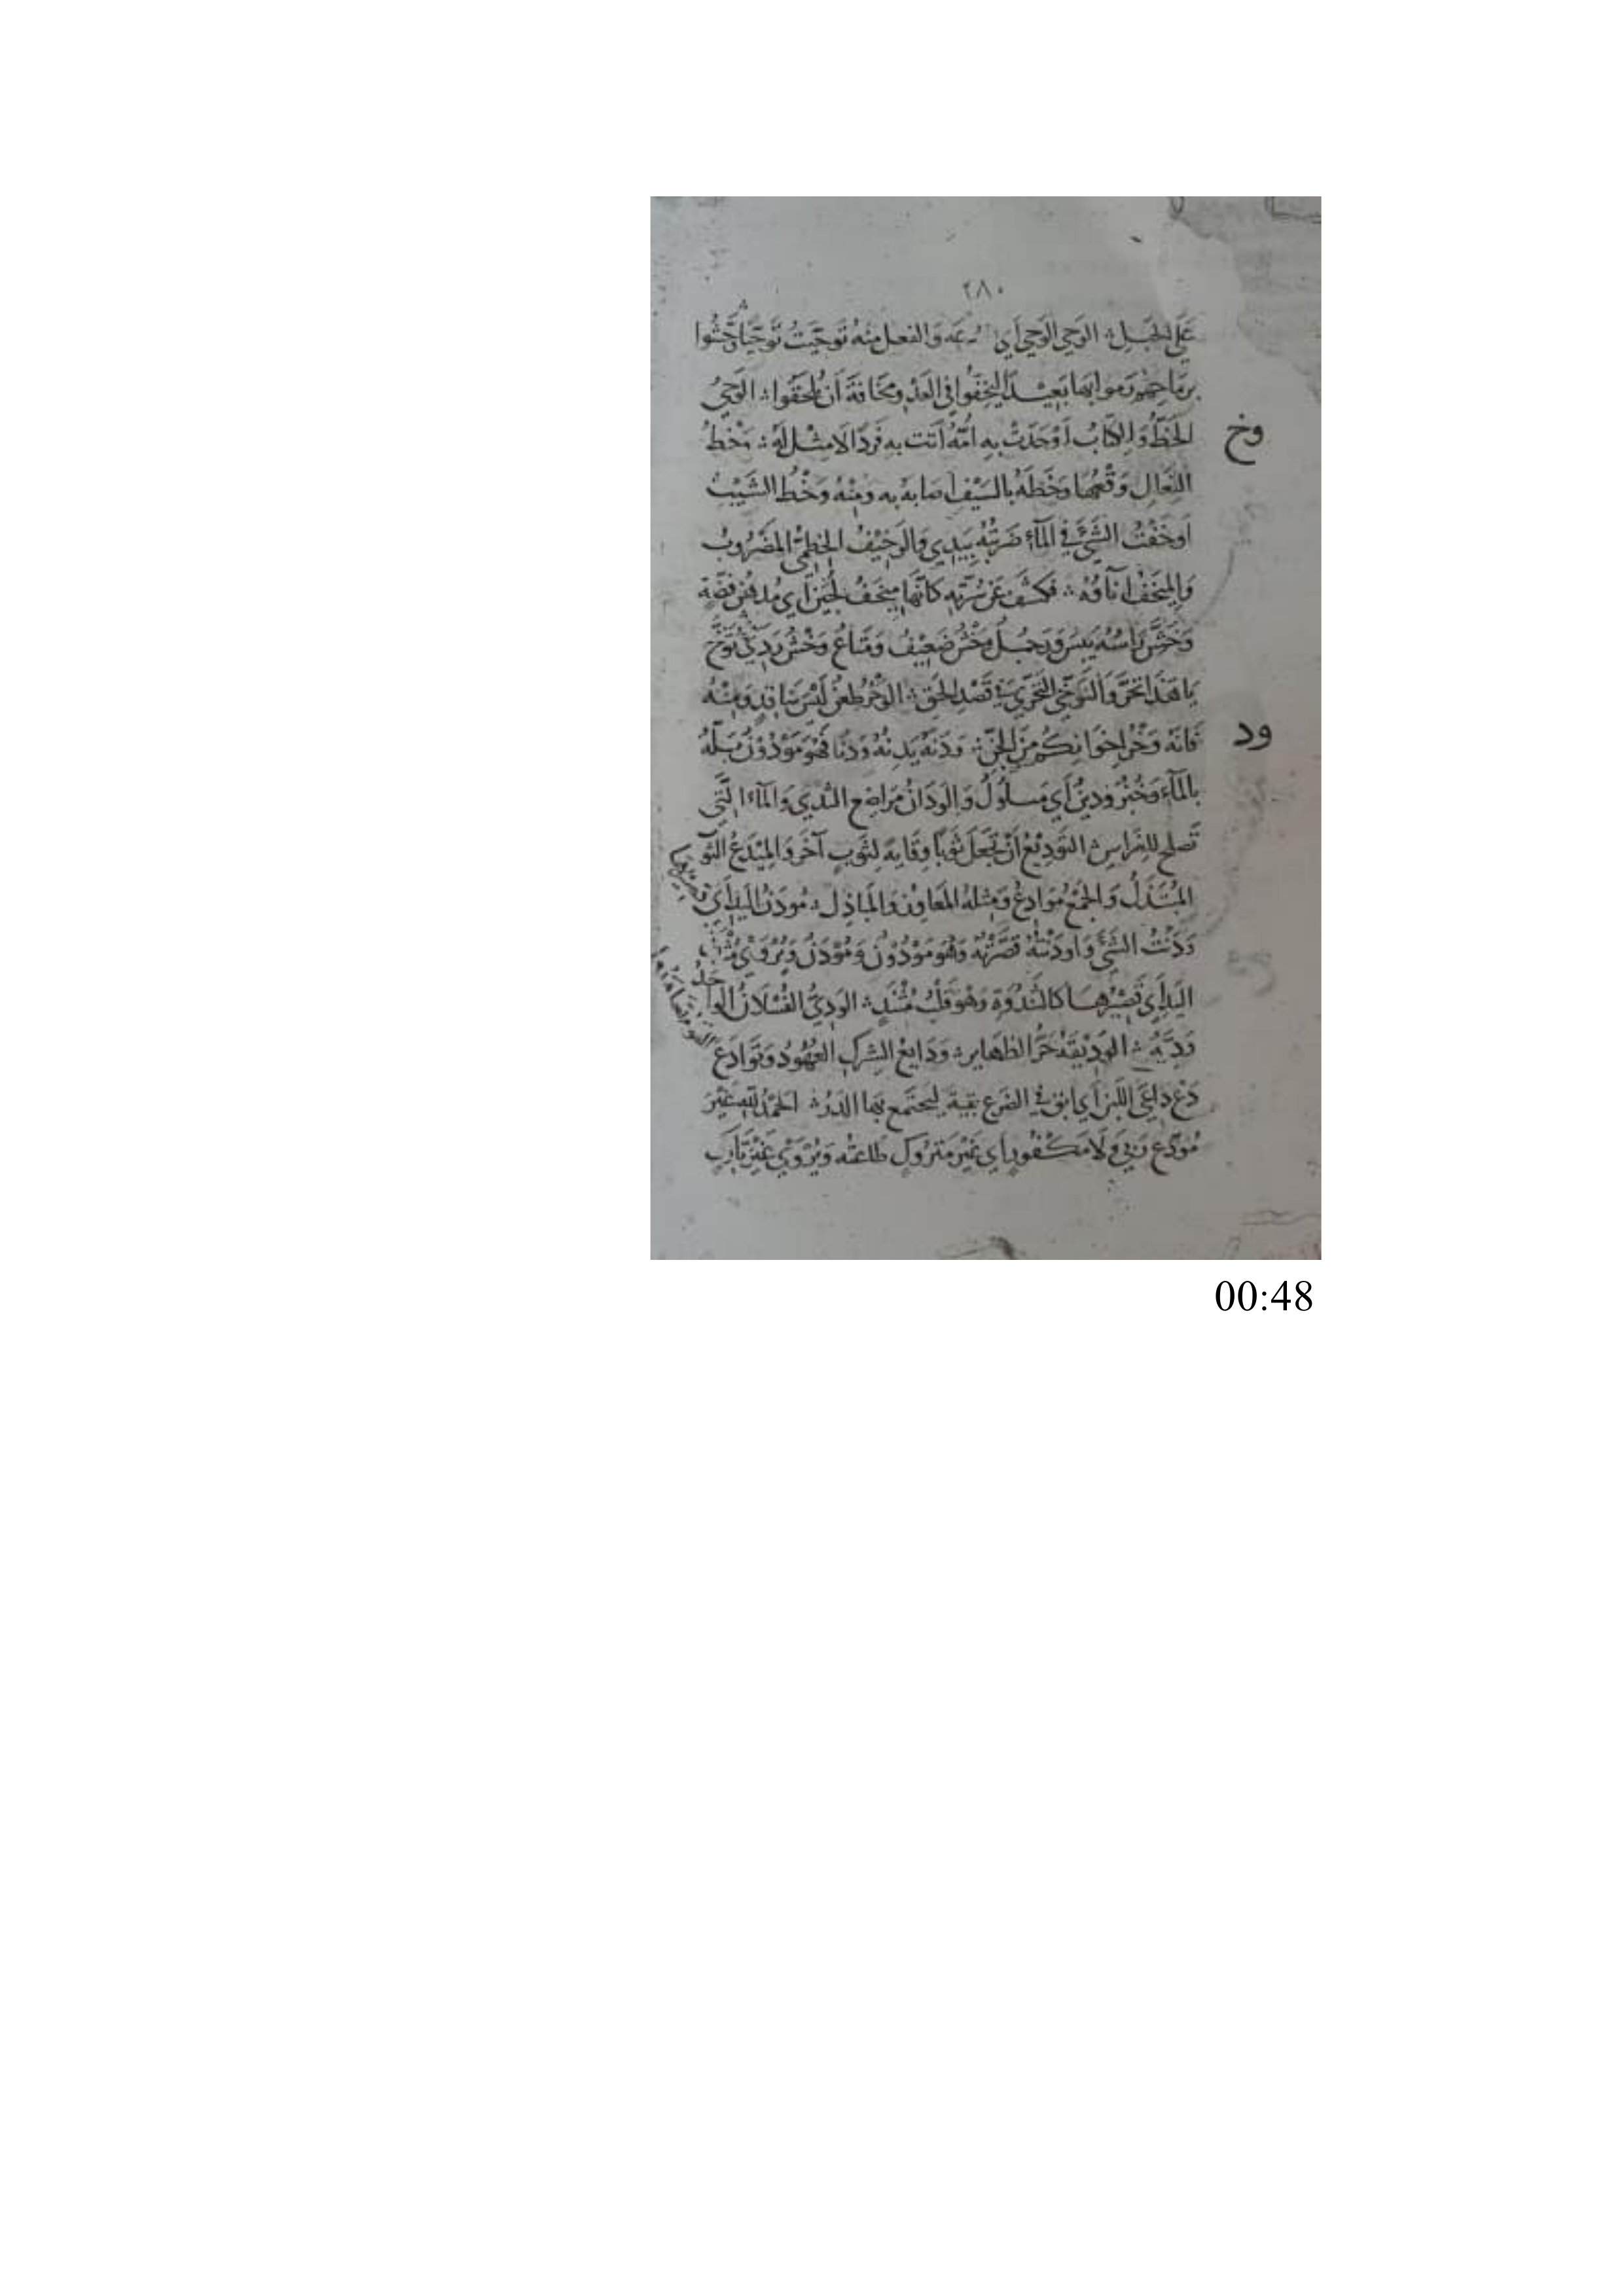 ٢٨٠
عَلَى الجَبَلِ الوَحِي الوَحِي أي والفعل منهُ تَوحّيتُ تَوَحّيًا وَحَّشُوا
برمَاحِهم رَموا بها بَعِيْدًا لِيَخِفّوا في العَدْوِ ومخَافَةَ أنْ يُلحَقُوا الوَحْيُ
الخَطُّ وَالكِتَابُ أَوْحَدَتْ بِهِ امُّهُ أتت به فَردًا لا مِثْلَ لَهُ وَخْطُ
النِعَالِ وَقْعُهَا وَخَطَهُ بالسَّيْفِ اصَابَهُ به ومِنْهُ وَخْطُ الشَّيْبِ
وخ
اَوخَفْتُ الشَّيْءَ في المَآءِ ضَرَبْتُهُ بِيَدِي وَالوَخِيْفُ الخِطْمِيُّ المَضْرُوبُ
وَالمِيْخَفُ إنَآؤُهُ فكَشَفَ عَنْ سُرَّتِهِ كَأنَّهَا مِيْخَفُ لُجَيْنٍ أي مُدهُنُ فِضَّةٍ
رَأسُهُ يَبِسَ وَرَجُلٌ وَخْشٌ ضَعِيْفٌ وَمَتَاعٌ وَخْشٌ رَدِيٌّ تَوَخَّ
يَا هَذَا تَحَرَّ وَالتَّوَخِّي التَّحَرِّي قَصْد الحَقِ الوَخْزُ طَعْنٌ لَيْسَ بنَافِذٍ وَمِنْهُ
فَانَّهُ وَخْزُ اِخوَانِكُم مِنَ الجِنِّ وَدَنَهُ يَدِنُهُ وَدْنًا فَهُوَ مَوْدُوْنٌ بَلَّهُ
ود
بالمَآءِ وَخُبْزٌ وَدِينٌ أي مَبلُولٌ وَالوِدَانُ مَوَاضِع النَّدِي وَالمَآء الَّتِي
تَصلح لِلغِراسِ التَّوْدِيْعُ أنْ تَجعَلَ ثَوبًا وِقَايَةً لِثَوبٍ آخَرَ وَالمِيْدَعُ الثَّو
المُبْتَذَلُ وَالجَمْعُ مَوَادِعُ وَمِثْلهُ المَعَاوِزُ وَالمَبَاذِل مُودَنُ اليَدِ أي قصيرها
وَدَنْتُ الشَّيْءَ وَاَودَنْتُهُ قَصَّرْتُهُ وَهُوَ مَوْدُوْنٌ وَمُوْدَنٌ وَيُرْوَي مُثْدَن
اليَدِ أي قَصِيْرُهَا كَالثَّنْدُوَةِ وَهْوَ قَلْبُ مُثْنَدٍ الوَدِيُّ الفُسْلَانُ الواحدُ
وَدِيَّةٌ الوَدِيْقَةُ حَرُّ الظهَايِرِ وَدَايِعُ الشِركِ العُهُوْدُ وَتَوَادَعَ
دَعْ دَاعِيَ اللَّبَنِ أي ابق في الضَرع بقيّة ليجتمع بها الدَرُّ الحَمْدُ لله غَيْرَ
مُوَدَّعٍ رَبِّي وَلَا مَكْفُورٍ أي غَيْرَ مَتْرُوكٍ طَاعَتُه وَيُرْوَي غَيْرَ تَارِكٍ
00:48